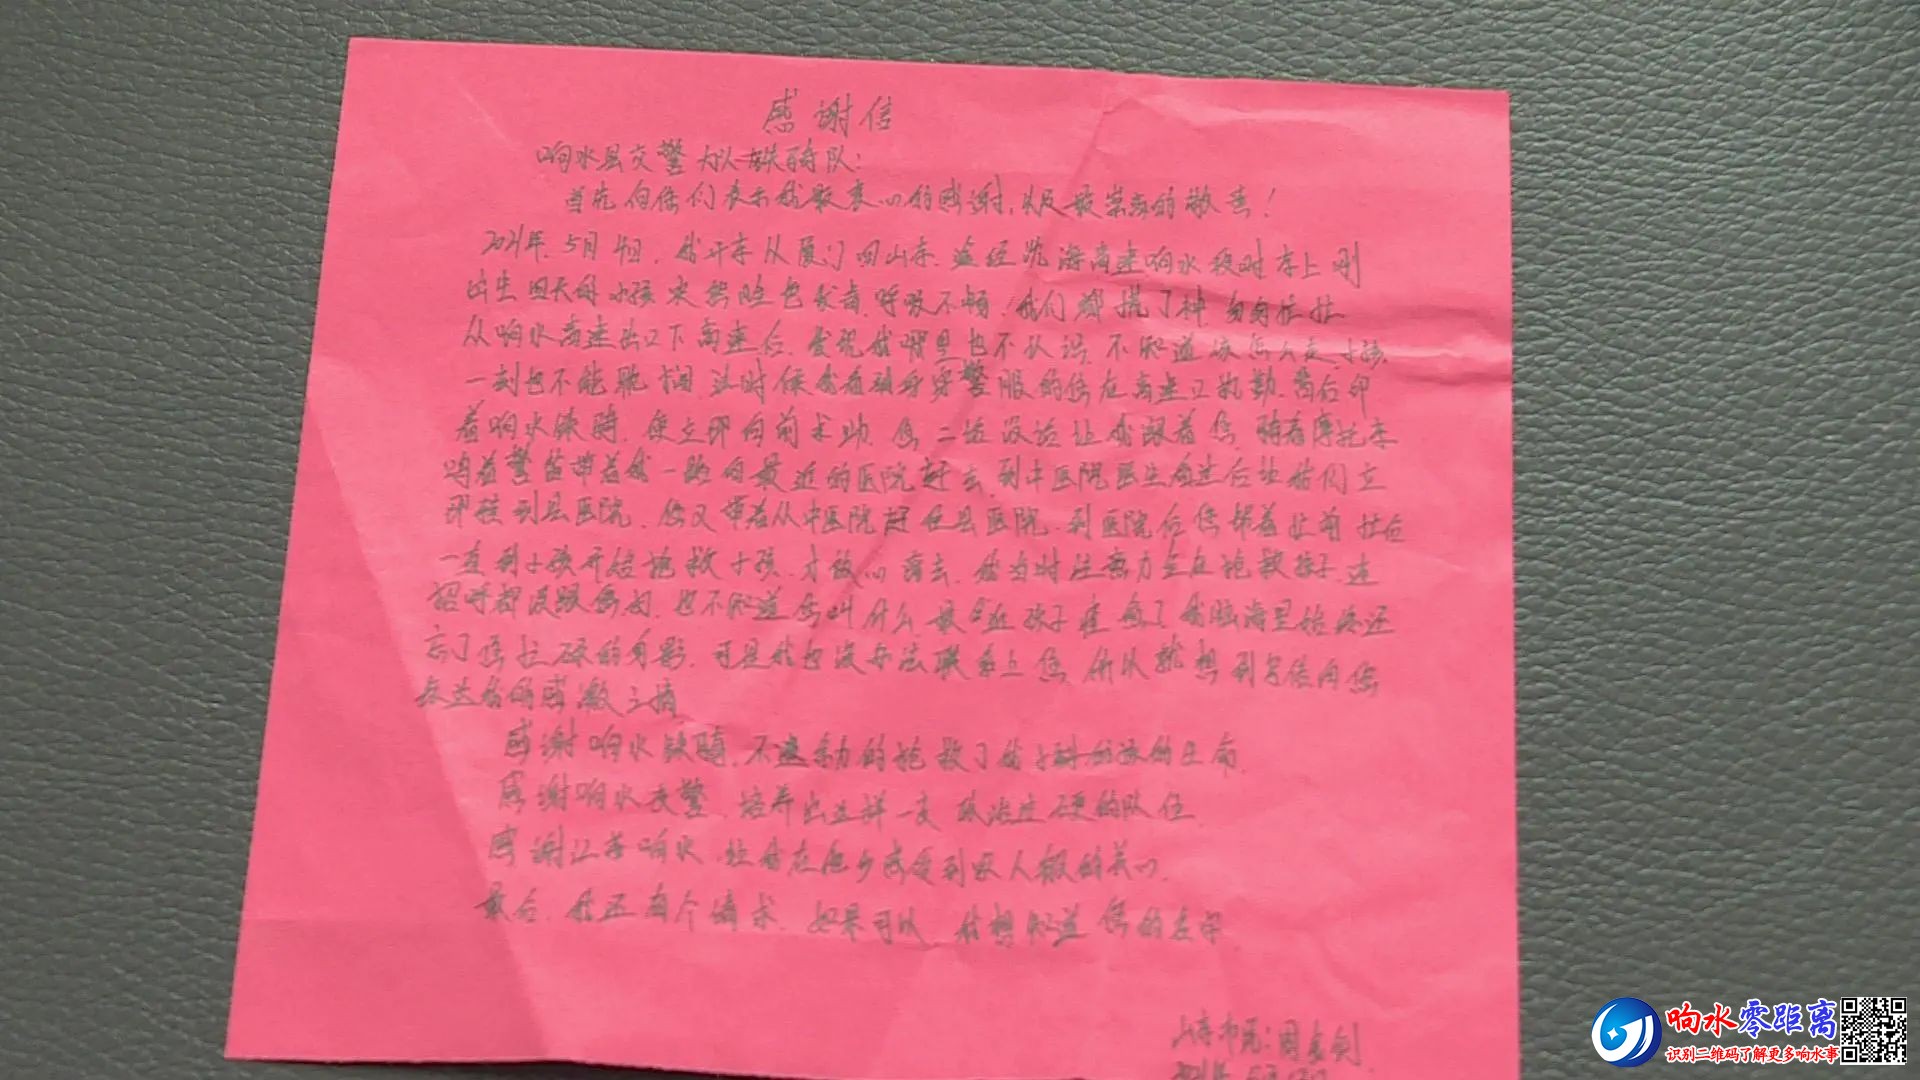 感谢信
响水县交警大队铁骑队：
首先向您们表示我最衷心的感谢，以及最崇高的敬意！
2021年5月4日，我开车从厦门回山东，途经沈海高速响水段时车上刚
出生四天的小孩突然脸色发青，呼吸不畅，我们都慌了神匆匆忙忙
从响水高速出口下高速后，发现我哪里也不认识，不知道该怎么走，小孩
一刻也不能耽搁，这时候我看到身穿警服的您在高速口执勤，背后印
着响水铁骑，便立即向前求助，您二话没说让我跟着您，骑着摩托车
鸣着警笛带着我一路向最近的医院赶去，到中医院医生看过后让我们立
即转到县医院，您又带着从中医院赶往县医院，到医院后您帮着忙前忙后
一直到小孩开始抢救小孩，才放心离去，我当时注意力全在抢救孩子，连
招呼都没跟您打，也不知道您叫什么，最近孩子痊愈了我脑海里始终还
忘了您忙碌的身影，可是我也没办法联系上您，所以就想到写信向您
表达我的感激之情
感谢响水铁骑，不遗余力的抢救了我的生命
感谢响水交警，培养出这样一支政治过硬的队伍
感谢江苏响水，让我在他乡感受到家人般的关心
最后，我还有个请求，如果可以，我想知道您的名字
山东市民：周
2021年5月
响水零距离
识别二维码了解更多响水事